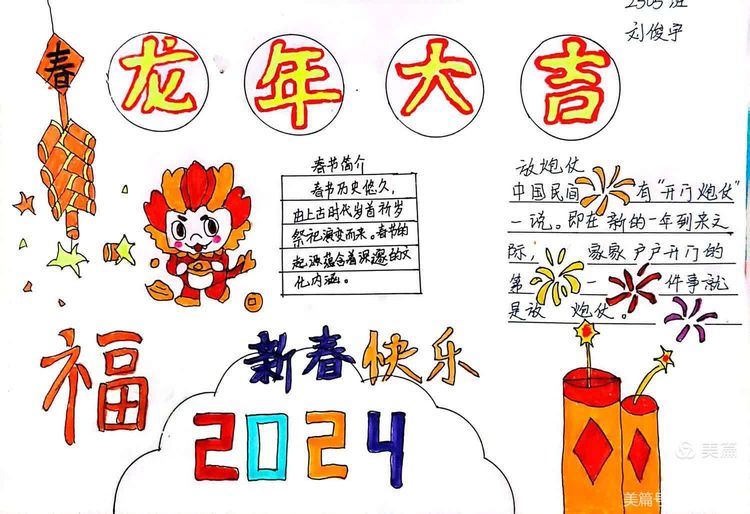 2303班
刘俊宇
春
龙年大吉
春节简介
春节历史悠久，
由上古时代岁首祈岁
祭祀演变而来。春节的
起源蕴含着深邃的文
化内涵。
放炮仗
中国民间有“开门炮仗”
一说。即在新的一年到来之
际，家家户户开门的
第一件事就
是放炮仗。
福
新春快乐
2024
美篇
美篇号